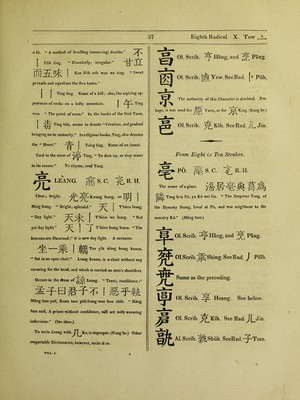 57 Eighth Radical. X. Tow 亠
a lie. "A method of levelling (removing) doubts." 不
| Püh ting "Disorderly; irregular." 甘立
而五味| Kan leih urh woo we ting. "Sweet
prevails and equalizes the five tastes."
| | Ting ting Name of a hill; also, the aspiring appearance of rocks on a lofty mountain. 午| Ting
woo. "The point of noon." In the books of the Sect Taou,
| 毒 Ting tüh, seems to denote "Creation, and gradual
bringing on to maturity." In religious books, Ting, also denotes
the "Heart." 青 | Tsing ting. Name of an insect.
Used in the sense of 渟 Ting, "To dam up, or stay water
in its course." To rhyme, read Tang.
亮 LEANG. S. C. R. H.
Clear; bright. 光亮 Kwang leang. 明|
Ming leang. "Bright; splendid." 天 | Tëen leang.
"Day light." 天未 | Tëen we leang. "Not
yet day light." 天 | 了 Tëen leang leaou. "The
heavens are illumined;" it is now day light. A surname.
坐一乘 | 轎 Tso yih shing leang keaou.
"Sat in an open chair." Leang keaou, is a chair without any
covering for the head, and which is carried on men's shoulders.
Occurs in the sense of 諒 Leang. "Trust; confidence."
孟子曰君子不 | 惡乎執
Mäng tsze yuë, Keun tsze püh leang woo hoo chih. "Mäng
tsze said, A prince without confidence, will act with wavering
indecision." (See-shoo.)
To write Leang with 几 Ke, is improper. (Kang he.) Other
respectable Dictionaries, however, write it so.
VOL. I.
Ol. Scrib. 亨 Häng, and 烹 Päng.
Ol. Scrib. Yew. See Rad. | Püh.
京 The authority of this Character is doubted. Perhaps, it was used for Yuen, or for 京 King. (Kang he.)
Ol. Scrib. 克 Kih. See Rad. 儿 Jin.
From Eight to Ten Strokes.
亳 PÖ. S. C. R. H.
The name of a place. 湯居亳與葛爲
鄰 Tang keu Pö, yu Kö wei lin. "The Emperor Tang, of
the Dynasty Shang, lived at Pö, and was neighbour to the
country Kö." (Mäng tsze.)
Ol. Scrib. 亨 Häng, and 烹 Päng.
Ol. Scrib. Shing. See Rad. 丿 Pëih.
Same as the preceding.
Ol. Scrib. 享 Heang. See below.
Ol. Scrib. 克 Kih. See Rad. 儿 Jin.
Al. Scrib. 孰 Shüh. See Rad. 子 Tsze.